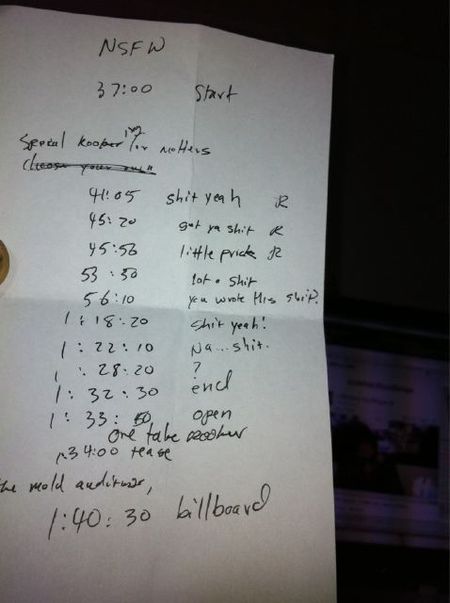 NSFW
37:00 Start
Special for matters
41:05 shit yeah R
45:20 got ya shit R
45:56 little prick R
53:50 lot a shit
56:10 you wrote this shit?
1:18:20 shit yeah!
1:22:10 Na...shit.
1:28:20 ?
1:32:30 end
1:33:50 open
one take
1:34:00 tease
the mold
1:40:30 billboard